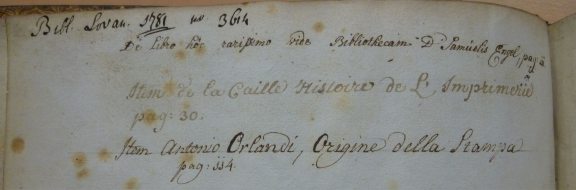 Bibl. Lovan. 1781 no 3614
De libro hoc rarissimo vide Bibliothecam D. Samuelis Engel, pag.
Item de la Caille Histoire de L'Imprimerie
pag: 30.
Item Antonio Orlandi, Origine della Stampa
pag: 114